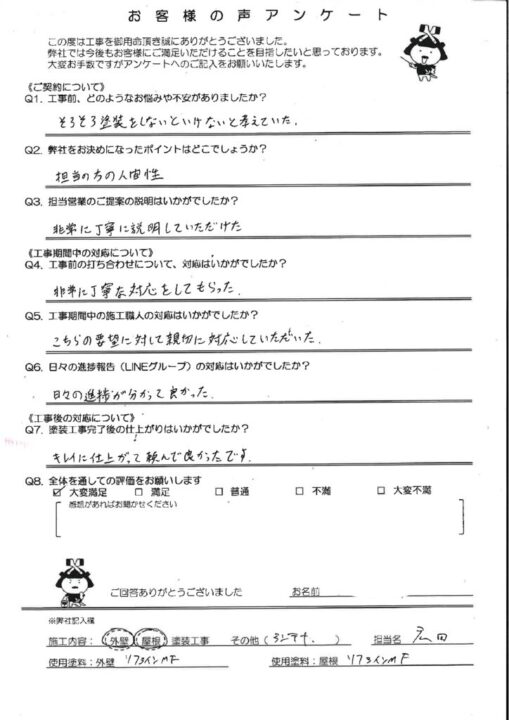 お客様の声アンケート
この度は工事を御用命頂き誠にありがとうございました。
弊社では今後もお客様にご満足いただけることを目指したいと思っております。
大変お手数ですがアンケートへのご記入をお願いいたします。
《ご契約について》
Q1. 工事前、どのようなお悩みや不安がありましたか？
そろそろ塗装をしないといけないと考えていた.
Q2. 弊社をお決めになったポイントはどこでしょうか？
担当の方の人間性
Q3. 担当営業のご提案の説明はいかがでしたか？
非常に丁寧に説明していただけた
《工事期間中の対応について》
Q4. 工事前の打ち合わせについて、対応はいかがでしたか？
非常に丁寧な対応をしてもらった.
Q5. 工事期間中の施工職人の対応はいかがでしたか？
こちらの要望に対して親切に対応していただいた.
Q6. 日々の進捗報告（LINEグループ）の対応はいかがでしたか？
日々の進捗が分かって良かった.
《工事後の対応について》
Q7. 塗装工事完了後の仕上がりはいかがでしたか？
キレイに仕上がって頼んで良かったです.
Q8. 全体を通しての評価をお願いします
☑ 大変満足 □ 満足 □ 普通 □ 不満 □ 大変不満
感想があればお聞かせください
ご回答ありがとうございました お名前
※弊社記入欄
施工内容：外壁 屋根 塗装工事 その他（ ） 担当名
使用塗料：外壁 使用塗料：屋根